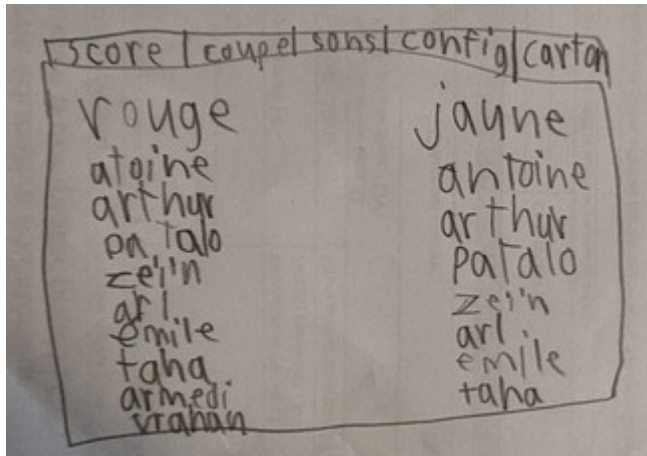 score | coupe | sons | config | carton
rouge
atoine
arthur
patalo
zein
arl.
emile
taha
armedi
vrahan
jaune
antoine
arthur
patalo
zein
arl.
emile
taha